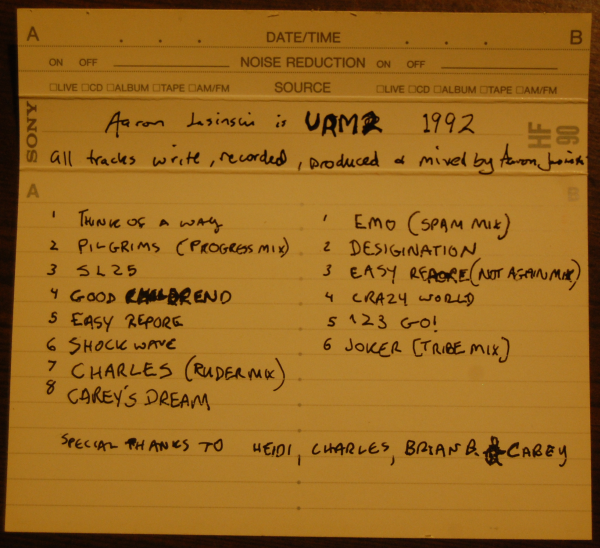 A DATE/TIME B
ON OFF NOISE REDUCTION ON OFF
□LIVE □CD □ALBUM □TAPE □AM/FM SOURCE □LIVE □CD □ALBUM □TAPE □AM/FM
SONY
HF 90
Aaron Jasinski is 1992
all tracks write, recorded, produced & mixed by Aaron Jasinski
A B
1 THINK OF A WAY
2 PILGRIMS (PROGRESS MIX)
3 SL25
4 GOOD END
5 EASY REPORE
6 SHOCKWAVE
7 CHARLES (RUDER MIX)
8 CAREY'S DREAM
1 EMO (SPAM MIX)
2 DESIGINATION
3 EASY REPORE (NOT AGAIN MIX)
4 CRAZY WORLD
5 123 GO!
6 JOKER (TRIBE MIX)
SPECIAL THANKS TO HEIDI, CHARLES, BRIAN B. & CAREY